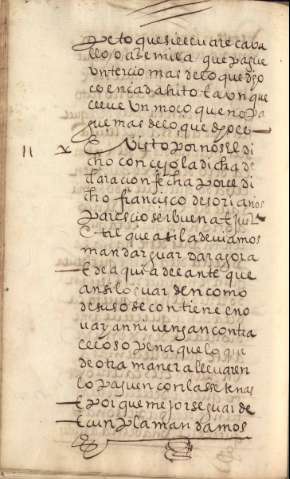 çeto que si lleuare caua
llo o azemila que pague
un tercio mas de lo que dho
es en cada hito la un que
lleue un moço que no pa
gue mas de lo que dho es
E visto por nos el di
cho concejo la dicha de
claracion fecha por el di
cho francisco de soria nos
parescio ser buena
E tal que asi la deuiamos
mandar guardar agora
E de aqui adelante que
ansi lo guarden como
de suso se contiene e no
vayan ni vengan contra
ello so pena que lo que
de otra manera lleuaren
lo paguen con las setenas
E por que mejor se guarde
E cunpla mandamos